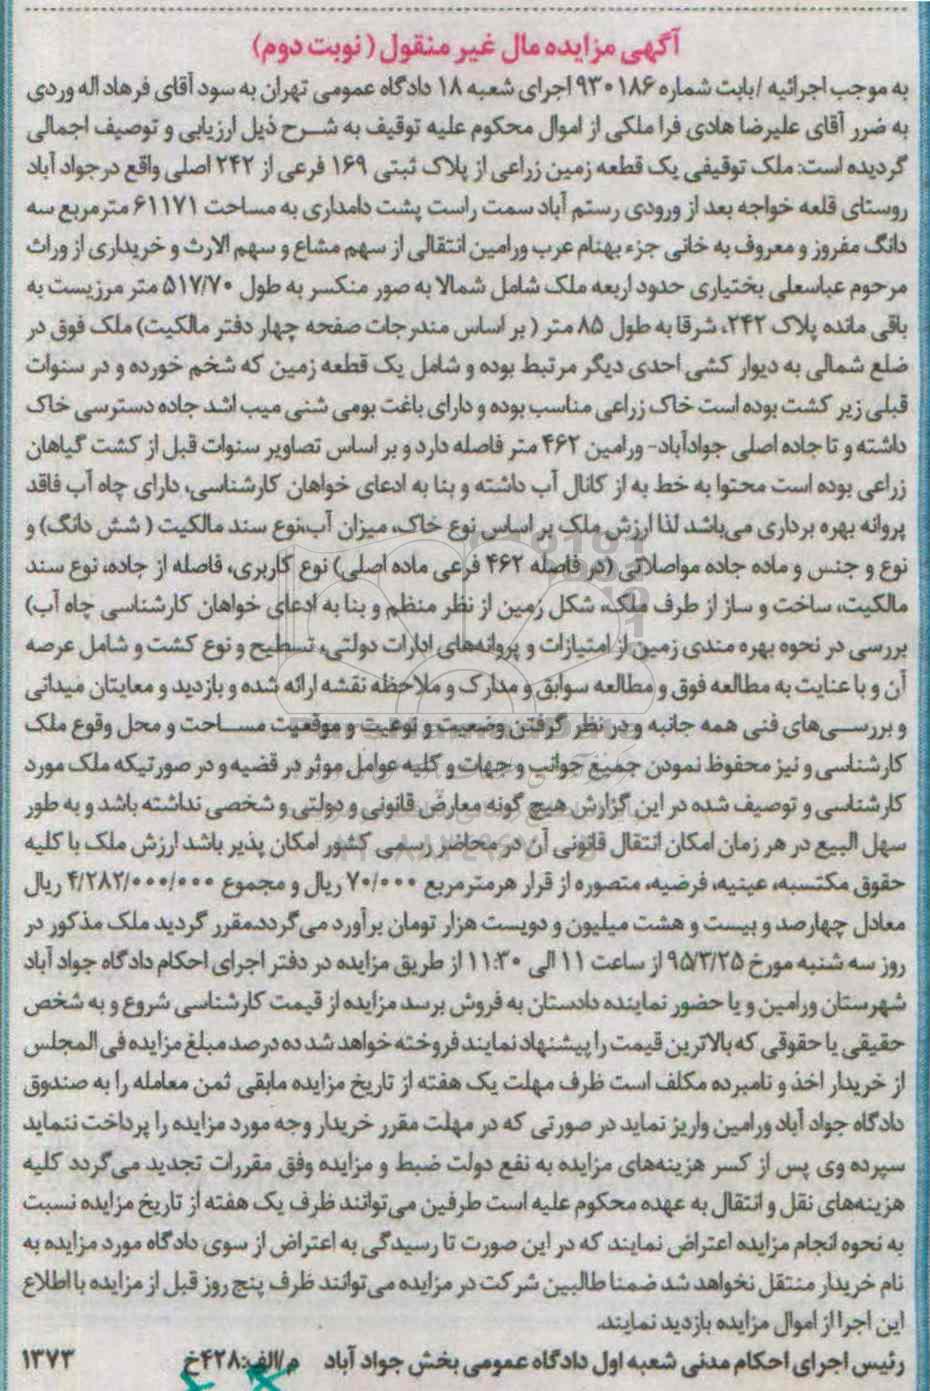 آگهی مزایده مال غیر منقول (نوبت دوم)
به موجب اجرائیه /بابت شماره ۹۳۰۱۸۶ اجرای شعبه ۱۸ دادگاه عمومی تهران به سود آقای فرهاد اله وردی
به ضرر آقای علیرضا هادی فرا ملکی از اموال محکوم علیه توقیف به شرح ذیل ارزیابی و توصیف اجمالی
گردیده است: ملک توقیفی یک قطعه زمین زراعی از پلاک ثبتی ۱۶۹ فرعی از ۲۴۲ اصلی واقع درجواد آباد
روستای قلعه خواجه بعد از ورودی رستم آباد سمت راست پشت دامداری به مساحت ۶۱۱۷۱ مترمربع سه
دانگ مفروز و معروف به خانی جزء بهنام عرب ورامین انتقالی از سهم مشاع و سهم الارث و خریداری از وراث
مرحوم عباسعلی بختیاری حدود اربعه ملک شامل شمالا به صور منکسر به طول ۵۱۷/۷۰ متر مرزیست به
باقی مانده پلاک ۲۴۲، شرقا به طول ۸۵ متر (بر اساس مندرجات صفحه چهار دفتر مالکیت) ملک فوق در
ضلع شمالی به دیوار کشی احدی دیگر مرتبط بوده و شامل یک قطعه زمین که شخم خورده و در سنوات
قبلی زیر کشت بوده است خاک زراعی مناسب بوده و دارای باغت بومی شنی میب اشد جاده دسترسی خاک
داشته و تا جاده اصلی جوادآباد- ورامین ۴۶۲ متر فاصله دارد و بر اساس تصاویر سنوات قبل از کشت گیاهان
زراعی بوده است محتوا به خط به از کانال آب داشته و بنا به ادعای خواهان کارشناسی، دارای چاه آب فاقد
پروانه بهره برداری می‌باشد لذا ارزش ملک بر اساس نوع خاک، میزان آب،نوع سند مالکیت (شش دانگ) و
نوع و جنس و ماده جاده مواصلاتی (در فاصله ۴۶۲ فرعی ماده اصلی) نوع کاربری، فاصله از جاده، نوع سند
مالکیت، ساخت و ساز از طرف ملک، شکل زمین از نظر منظم و بنا به ادعای خواهان کارشناسی چاه آب)
بررسی در نحوه بهره مندی زمین از امتیازات و پروانه‌های ادارات دولتی، تسطیح و نوع کشت و شامل عرصه
آن و با عنایت به مطالعه فوق و مطالعه سوابق و مدارک و ملاحظه نقشه ارائه شده و بازدید و معایتان میدانی
و بررسی‌های فنی همه جانبه و در نظر گرفتن وضعیت و نوعیت و موقعیت مساحت و محل وقوع ملک
کارشناسی و نیز محفوظ نمودن جمیع جوانب و جهات و کلیه عوامل موثر در قضیه و در صورتیکه ملک مورد
کارشناسی و توصیف شده در این گزارش هیچ گونه معارض قانونی و دولتی و شخصی نداشته باشد و به طور
سهل البیع در هر زمان امکان انتقال قانونی آن در محاضر رسمی کشور امکان پذیر باشد ارزش ملک با کلیه
حقوق مکتسبه، عینیه، فرضیه، متصوره از قرار هرمترمربع ۷۰/۰۰۰ ریال و مجموع ۴/۲۸۲/۰۰۰/۰۰۰ ریال
معادل چهارصد و بیست و هشت میلیون و دویست هزار تومان برآورد می‌گردد.مقرر گردید ملک مذکور در
روز سه شنبه مورخ ۹۵/۳/۲۵ از ساعت ۱۱ الی ۱۱:۳۰ از طریق مزایده در دفتر اجرای احکام دادگاه جواد آباد
شهرستان ورامین و با حضور نماینده دادستان به فروش برسد مزایده از قیمت کارشناسی شروع و به شخص
حقیقی یا حقوقی که بالاترین قیمت را پیشنهاد نمایند فروخته خواهد شد ده درصد مبلغ مزایده فی المجلس
از خریدار اخذ و نامبرده مکلف است ظرف مهلت یک هفته از تاریخ مزایده مابقی ثمن معامله را به صندوق
دادگاه جواد آباد ورامین واریز نماید در صورتی که در مهلت مقرر خریدار وجه مورد مزایده را پرداخت ننماید
سپرده وی پس از کسر هزینه‌های مزایده به نفع دولت ضبط و مزایده وفق مقررات تجدید می‌گردد کلیه
هزینه‌های نقل و انتقال به عهده محکوم علیه است طرفین می‌توانند ظرف یک هفته از تاریخ مزایده نسبت
به نحوه انجام مزایده اعتراض نمایند که در این صورت تا رسیدگی به اعتراض از سوی دادگاه مورد مزایده به
نام خریدار منتقل نخواهد شد ضمنا طالبین شرکت در مزایده می‌توانند ظرف پنج روز قبل از مزایده با اطلاع
این اجرا از اموال مزایده بازدید نمایند.
رئیس اجرای احکام مدنی شعبه اول دادگاه عمومی بخش جواد آباد م/الف:۴۲۸خ ۱۳۷۳